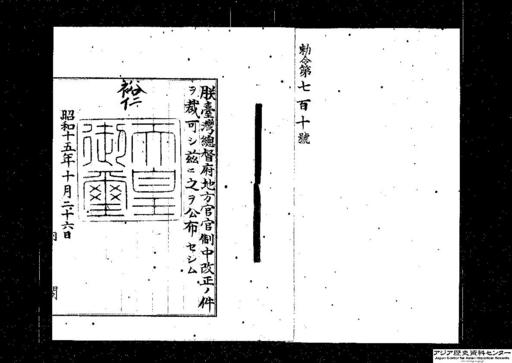 勅令第七百十號
朕臺灣總督府地方官官制中改正ノ件
ヲ裁可シ茲ニ之ヲ公布セシム
裕仁
天皇
御璽
昭和十五年十月二十六日
アジア歴史資料センター
Japan Center for Asian Historical Records